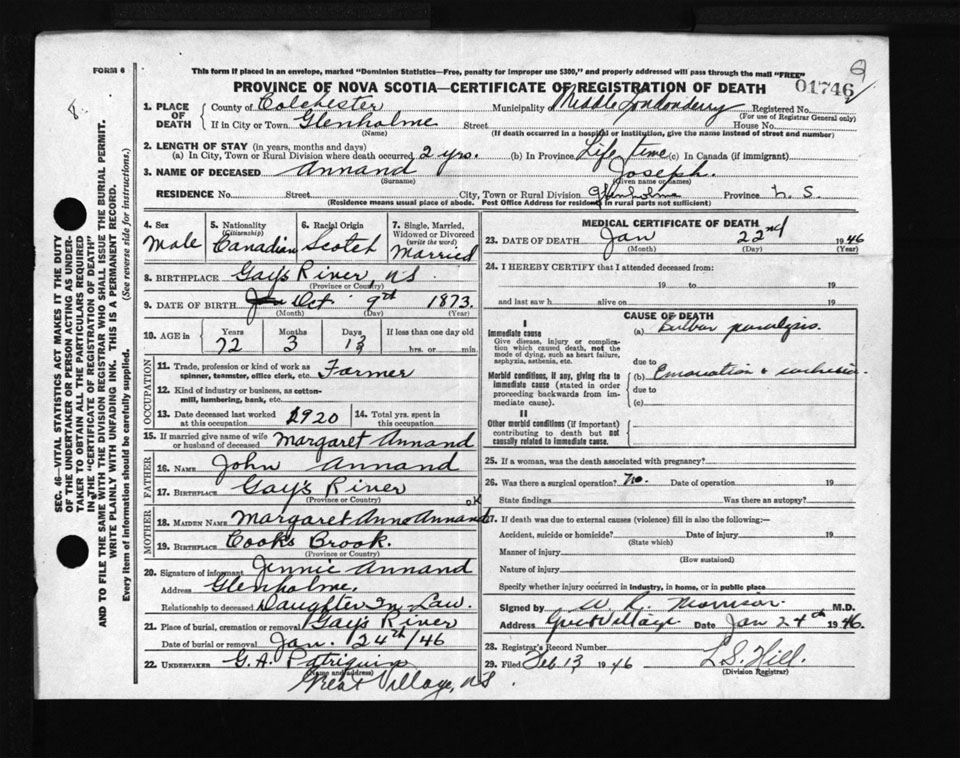 FORM 6
This form if placed in an envelope, marked "Dominion Statistics—Free, penalty for improper use $300," and properly addressed will pass through the mail "FREE"
9
PROVINCE OF NOVA SCOTIA—CERTIFICATE OF REGISTRATION OF DEATH
01746
8.
1. PLACE OF DEATH County of Colchester Municipality of Middle Londonderry Registered No.
(For use of Registrar General only)
If in City or Town Glenholme Street House No.
(Name) (If death occurred in a hospital or institution, give the name instead of street and number)
2. LENGTH OF STAY (in years, months and days)
(a) In City, Town or Rural Division where death occurred 2 yrs. (b) In Province Life time (c) In Canada (if immigrant)
3. NAME OF DECEASED Annand Joseph.
(Surname) (Given name or names)
RESIDENCE No. Street City, Town or Rural Division Glenholme Province N. S.
(Residence means usual place of abode. Post Office Address for residents in rural parts not sufficient)
4. Sex Male
5. Nationality (Citizenship) Canadian
6. Racial Origin Scotch
7. Single, Married, Widowed or Divorced (write the word) Married
8. BIRTHPLACE Gay's River, NS
(Province or Country)
9. DATE OF BIRTH Oct 9th 1873.
(Month) (Day) (Year)
10. AGE in Years Months Days If less than one day old
72 3 13 hrs. or min.
OCCUPATION
11. Trade, profession or kind of work as spinner, teamster, office clerk, etc. Farmer
12. Kind of industry or business, as cotton-mill, lumbering, bank, etc.
13. Date deceased last worked at this occupation 1920
14. Total yrs. spent in this occupation
15. If married give name of wife or husband of deceased Margaret Annand
FATHER
16. NAME John Annand
17. BIRTHPLACE Gay's River
(Province or Country)
OK
MOTHER
18. MAIDEN NAME Margaret Ann Annand
19. BIRTHPLACE Cooks Brook.
(Province or Country)
20. Signature of informant Jennie Annand
Address Glenholme,
Relationship to deceased Daughter In Law.
21. Place of burial, cremation or removal Gay's River
Date of burial or removal Jan. 24th/46
22. UNDERTAKER G. A. Patriquin
(Name and address)
Great Village, NS.
MEDICAL CERTIFICATE OF DEATH
23. DATE OF DEATH Jan 22nd 1946
(Month) (Day) (Year)
24. I HEREBY CERTIFY that I attended deceased from:
19 to 19
and last saw h alive on 19
CAUSE OF DEATH
I
Immediate cause (a) Bulbar paralysis.
Give disease, injury or complication which caused death, not the mode of dying, such as heart failure, asphyxia, asthenia, etc.
due to
Morbid conditions, if any, giving rise to immediate cause (stated in order proceeding backwards from immediate cause).
(b) Emaciation &
due to
(c)
II
Other morbid conditions (if important) contributing to death but not causally related to immediate cause.
25. If a woman, was the death associated with pregnancy?
26. Was there a surgical operation? no. Date of operation 19
State findings Was there an autopsy?
27. If death was due to external causes (violence) fill in also the following:—
Accident, suicide or homicide? Date of injury 19
(State which)
Manner of injury
(How sustained)
Nature of injury
Specify whether injury occurred in industry, in home, or in public place
Signed by Morrison M.D.
Address Great Village Date Jan 24th 1946.
28. Registrar's Record Number
29. Filed Feb 13 1946 L.S. Hill.
(Division Registrar)
SEC. 46—VITAL STATISTICS ACT MAKES IT THE DUTY
OF THE UNDERTAKER OR PERSON ACTING AS UNDER-
TAKER TO OBTAIN ALL THE PARTICULARS REQUIRED
IN THE "CERTIFICATE OF REGISTRATION OF DEATH"
AND TO FILE THE SAME WITH THE DIVISION REGISTRAR WHO SHALL ISSUE THE BURIAL PERMIT.
WRITE PLAINLY WITH UNFADING INK. THIS IS A PERMANENT RECORD.
Every item of information should be carefully supplied. (See reverse side for instructions.)